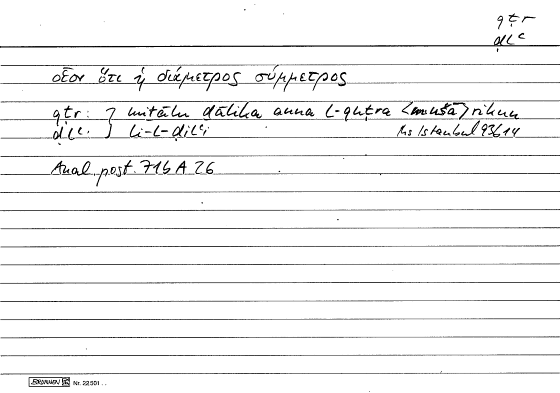 qṭr
ḍlʿ
οἷον ὅτι ἡ διάμετρος σύμμετρος
qṭr: } miṯālu ḏālika anna l-quṭra <mušā>rikun
ḍlʿ: } li-l-ḍilʿi Ms Istanbul 93614
Anal. post. 71b A 26
BRUNNEN Nr. 22501